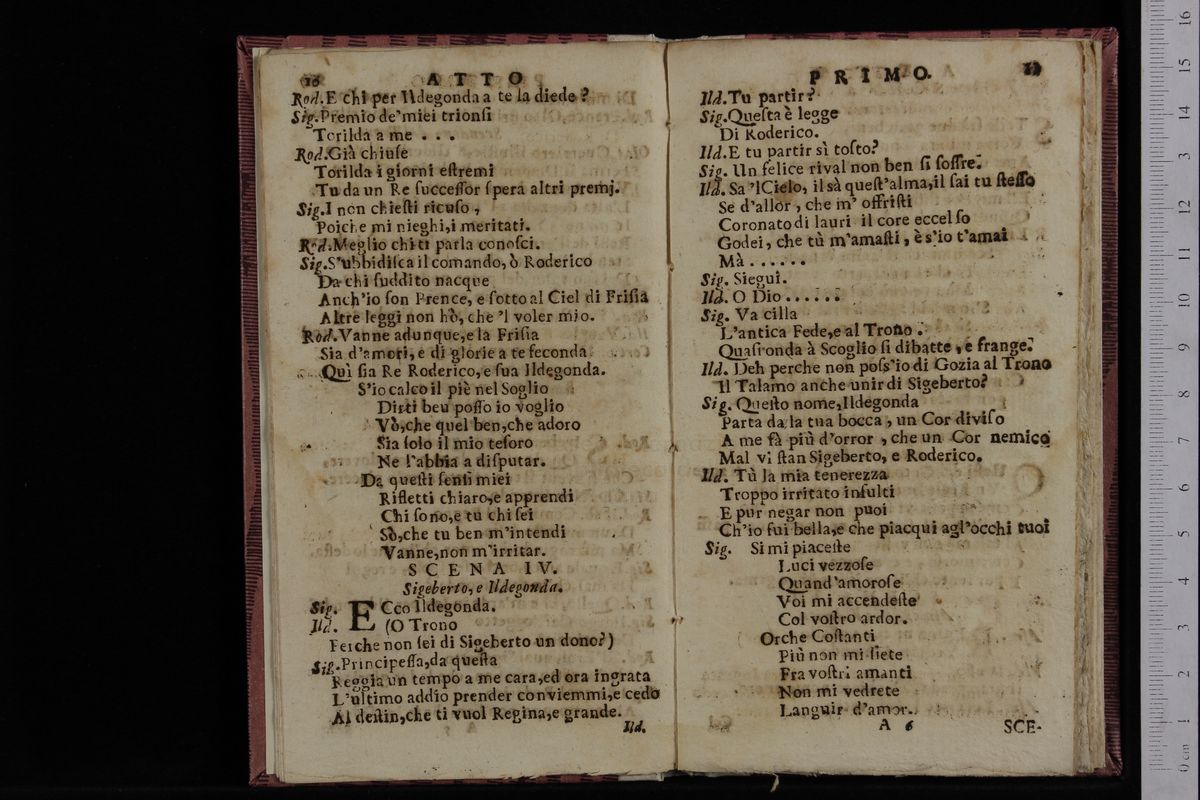 10 ATTO
Rod.E chi per Ildegonda a te la diede?
Sig.Premio de'miei trionfi
Torilda a me . . .
Rod.Già chiuſe
Torilda i giorni eſtremi
Tu da un Re ſucceſſor ſpera altri premj.
Sig.I non chieſti ricuſo,
Poiche mi nieghi,i meritati.
Rod.Meglio chi ti parla conoſci.
Sig.S'ubbidiſca il comando, ò Roderico
Da chi ſuddito nacque
Anch'io ſon Prence, e ſotto al Ciel di Friſia
Altre leggi non hò, che 'l voler mio.
Rod.Vanne adunque,e la Friſia
Sia d'amori, e di glorie a te feconda
Quì ſia Re Roderico, e ſua Ildegonda.
S'io calco il piè nel Soglio
Dirti ben poſſo io voglio
Vò,che quel ben,che adoro
Sia ſolo il mio teſoro
Ne l'abbia a diſputar.
Da queſti ſenſi miei
Rifletti chiaro,e apprendi
Chi ſono,e tu chi ſei
Sò,che tu ben m'intendi
Vanne,non m'irritar.
SCENA IV.
Sigeberto, e Ildegonda.
Sig. ECco Ildegonda.
Ild. (O Trono
Perche non ſei di Sigeberto un dono?)
Sig.Principeſſa,da queſta
Reggia un tempo a me cara,ed ora ingrata
L'ultimo addio prender conviemmi,e cedo
Al deſtin,che ti vuol Regina,e grande.
Ild.
PRIMO. 11
Ild.Tu partir?
Sig.Queſta è legge
Di Roderico.
Ild.E tu partir sì toſto?
Sig. Un felice rival non ben ſi ſoffre.
Ild. Sa 'l Cielo, il sà queſt'alma,il ſai tu ſteſſo
Se d'allor, che m' offriſti
Coronato di lauri il core eccelſo
Godei, che tù m'amaſti, e s'io t'amai
Mà . . . . . .
Sig. Siegui.
Ild. O Dio . . . . . .
Sig. Vacilla
L'antica Fede,e al Trono.
Quaſi onda à Scoglio ſi dibatte, e frange.
Ild. Deh perche non poſs'io di Gozia al Trono
Il Talamo anche unir di Sigeberto?
Sig. Queſto nome,Ildegonda
Parta da la tua bocca, un Cor diviſo
A me fà più d'orror, che un Cor nemico
Mal vi ſtan Sigeberto, e Roderico.
Ild. Tù la mia tenerezza
Troppo irritato inſulti
E pur negar non puoi
Ch'io fui bella,e che piacqui agl'occhi tuoi
Sig. Si mi piaceſte
Luci vezzoſe
Quand'amoroſe
Voi mi accendeſte
Col voſtro ardor.
Or che Coſtanti
Più non mi ſiete
Fra voſtri amanti
Non mi vedrete
Languir d'amor.
A 6 SCE-